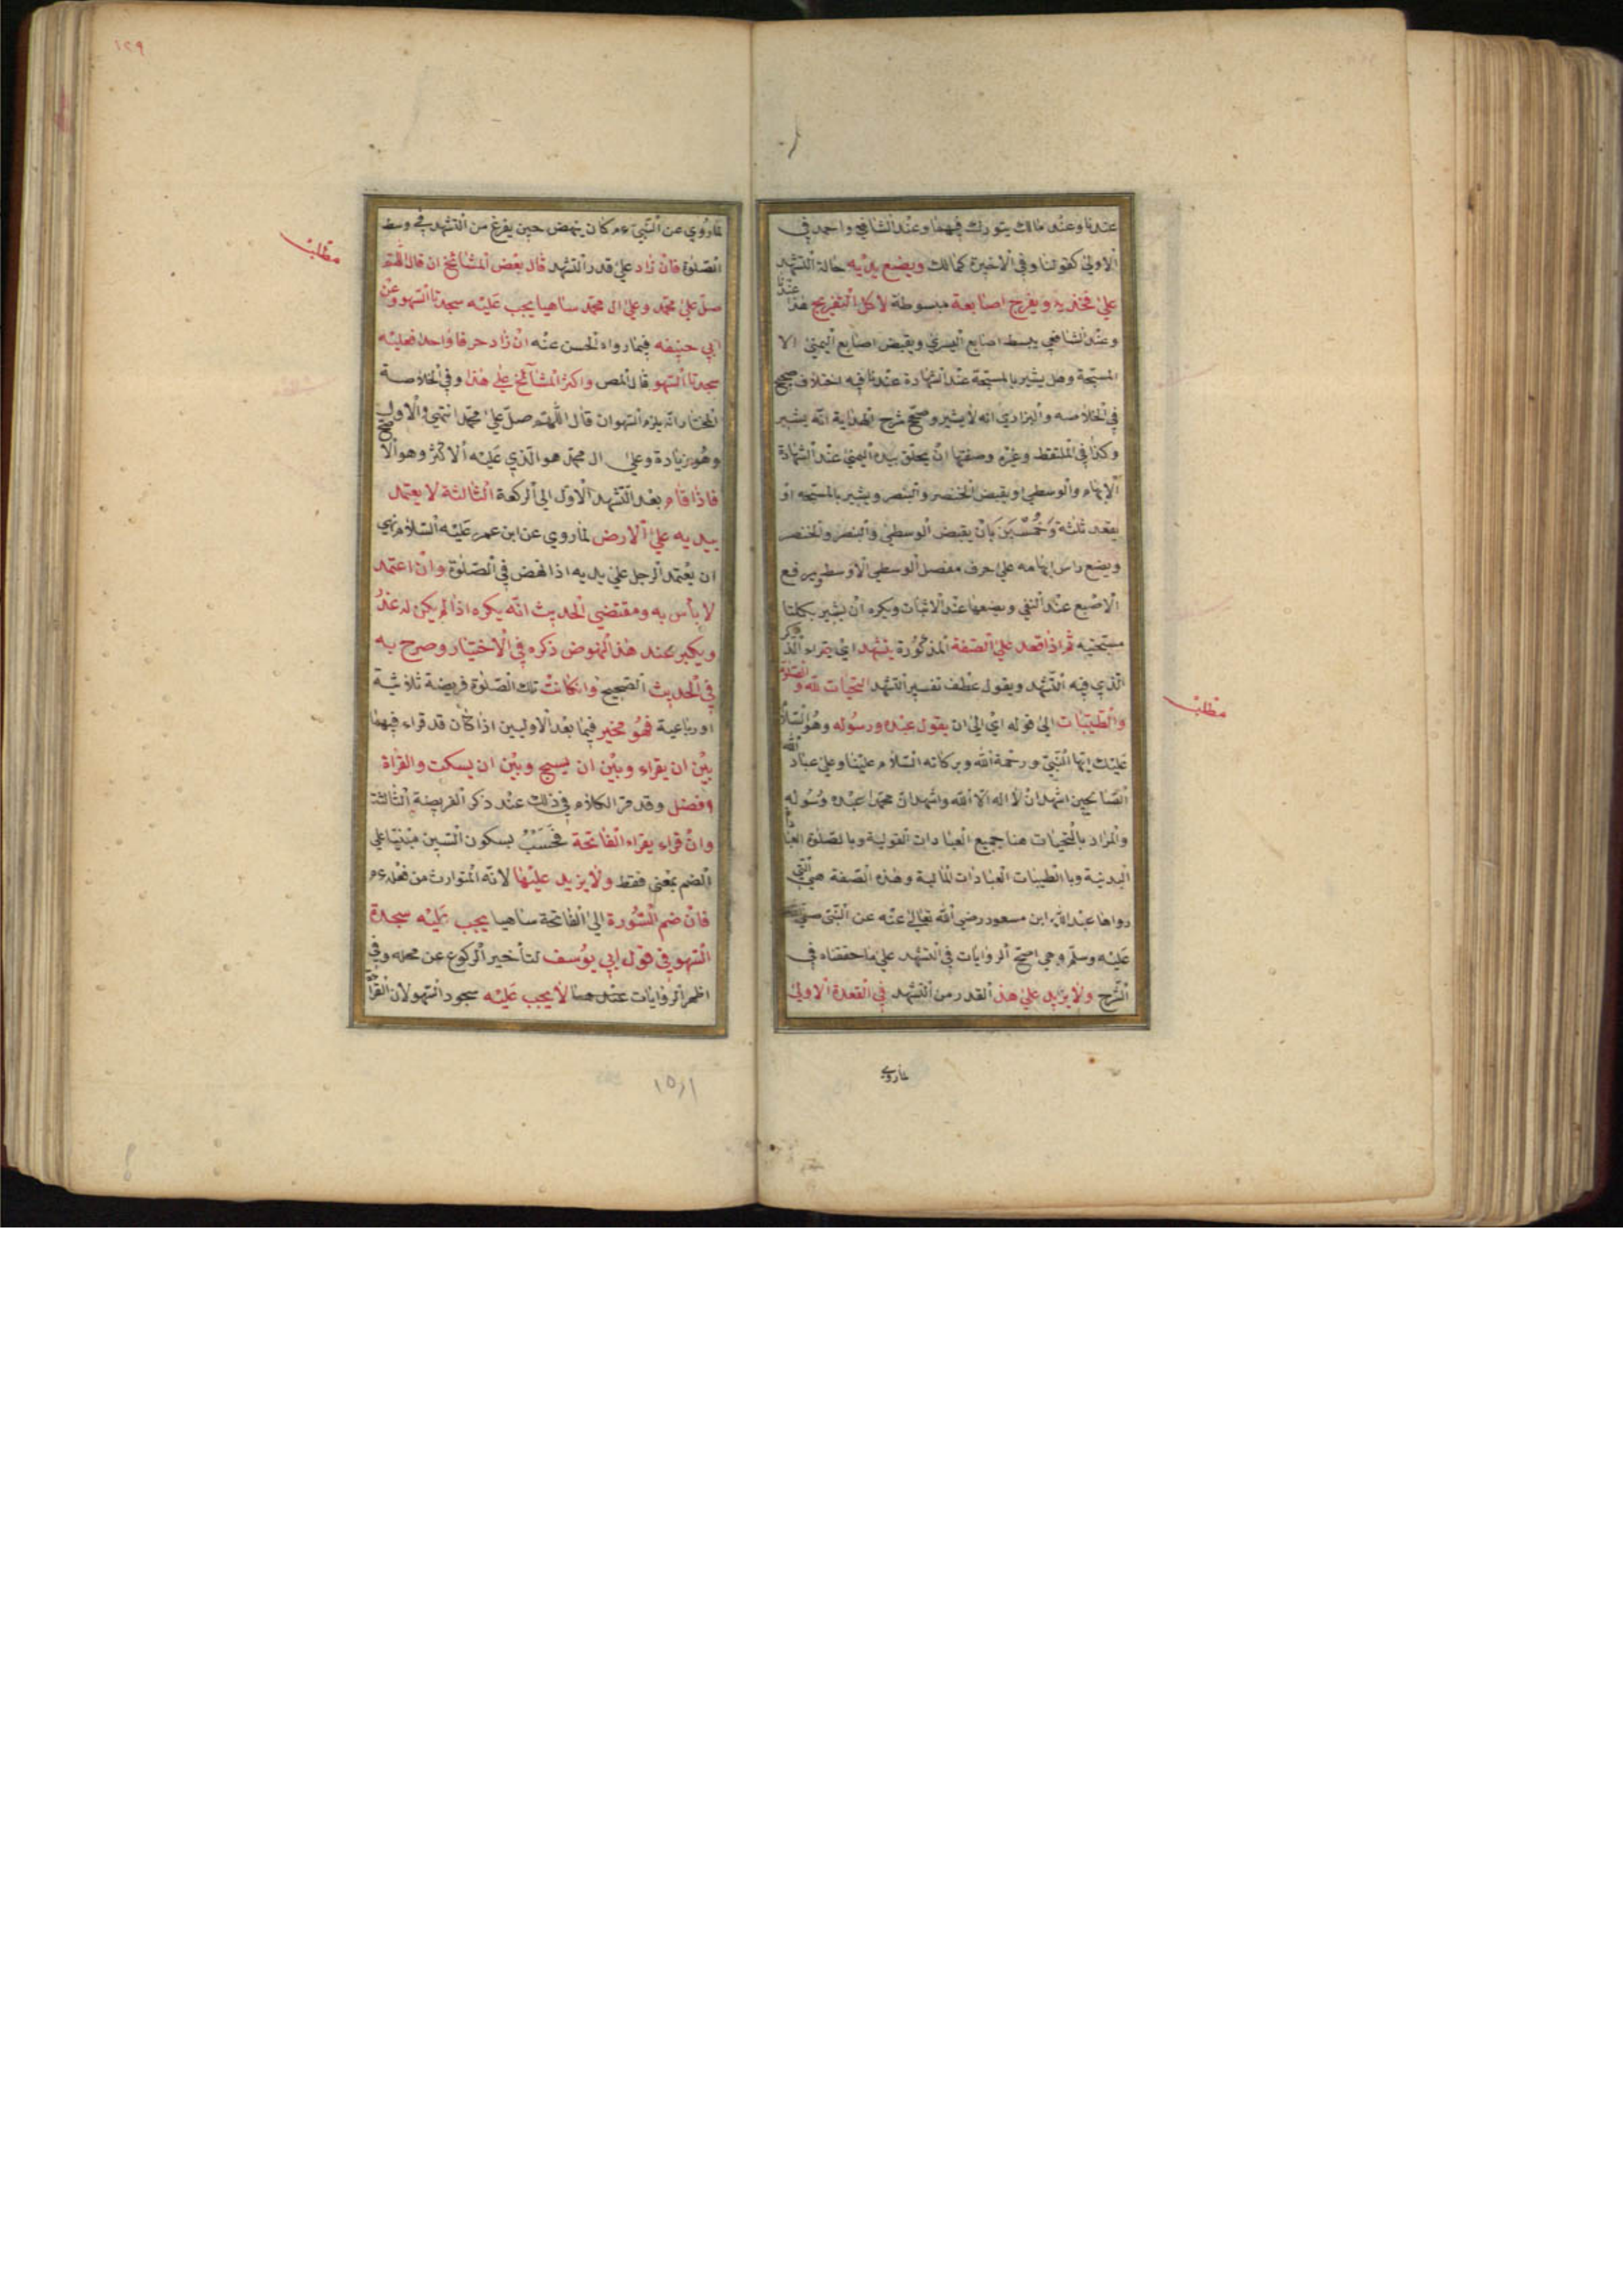 عندنا وعند مالك يتورك فيهما وعند الشافعي واحمد في
الاولى كقولنا وفي الاخيرة كمالك ويضع يديه حالة التشهد
على فخذيه ويفرج اصابعه مبسوطة لا كل التفريج هذا عندنا
وعند الشافعي يبسط اصابع اليسرى ويقبض اصابع اليمنى الا
المسبحة وهل يشير بالمسبحة عند الشهادة عندنا فيه اختلاف صحح
في الخلاصه والبزازي انه لا يشير وصحح شرح الهداية انه يشير
وكذا في الملتقط وغيره وصفتها ان يحلق بيده اليمنى عند الشهادة
الابهام والوسطى ويقبض الخنصر والبنصر ويشير بالمسبحه او
يعقد ثلثة وخمسين بان يقبض الوسطى والبنصر والخنصر
ويضع راس ابهامه على حرف مفصل الوسطى الاوسط ويرفع
الاصبع عند النفي ويضعها عند الاثبات ويكره ان يشير بكلتا
مسبحتيه ثم اذا قعد على الصفة المذكورة يتشهد اي يقراء الذكر
الذي فيه التشهد ويقول عطف تفسير التشهد التحيات لله والصلوة
والطيبات الى قوله اي الى ان يقول عبده ورسوله وهو السلام
عليك ايها النبي ورحمة الله وبركاته السلام علينا وعلى عباد الله
الصالحين اشهد ان لا اله الا الله واشهد ان محمدا عبده ورسوله
والمراد بالتحيات هنا جميع العبادات القولية وبالصلوة العبادات
البدنية وبالطيبات العبادات المالية وهذه الصفة هي التي
رواها عبد الله ابن مسعود رضي الله تعالى عنه عن النبي صلى الله
عليه وسلم وهي اصح الروايات في التشهد على ما حققناه في
الشرح ولا يزيد على هذ القدر من التشهد في القعدة الاولى
لماروي
مطلب
١٢٩
لماروي عن النبي ءم كان ينهض حين يفرغ من التشهد في وسط
الصلوة فان زاد على قدر التشهد قال بعض المشائخ ان قال اللهم
صل على محمد وعلى ال محمد ساهيا يجب عليه سجدتا السهو وعن
ابي حنيفه فيما رواه الحسن عنه ان زاد حرفا واحدا فعليه
سجدتا السهو قال المص واكثر المشآئخ على هذا وفي الخلاصة
المختار انه يلزم السهو ان قال اللهم صل على محمد انتهى والاول
وهو بزيادة وعلى ال محمد هو الذي عليه الاكثر وهو الاصح
فاذا قام بعد التشهد الاول الى الركعة الثالثة لا يعتمد
بيديه على الارض لماروي عن ابن عمر عليه السلام نهى
ان يعتمد الرجل على يديه اذا نهض في الصلوة وان اعتمد
لا باس به ومقتضى الحديث انه يكره اذا لم يكن له عذر
ويكبر عند هذ النهوض ذكره في الاختيار وصرح به
في الحديث الصحيح وان كانت تلك الصلوة فريضة ثلاثية
او رباعية فهو مخير فيما بعد الاوليين اذا كان قد قراء فيهما
بين ان يقراء وبين ان يسبح وبين ان يسكت والقراة
افضل وقد مر الكلام في ذلك عند ذكر الفريضة الثالثة
وان قراء يقراء الفاتحة فحسب بسكون السين مبنيا على
الضم بمعنى فقط ولا يزيد عليها لانه المتوارث من فعله ءم
فان ضم السورة الى الفاتحة ساهيا يجب عليه سجدة
السهو في قول ابي يوسف لتأخير الركوع عن محله وفي
اظهر الروايات عند هما لا يجب عليه سجود السهو لان القراة
مطلب